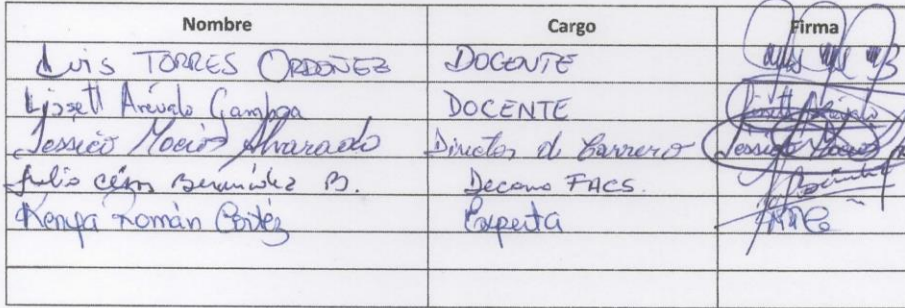 Nombre Cargo Firma
Luis TORRES ORDOÑEZ DOCENTE
Lissett Arévalo Gamboa DOCENTE Lissett Arévalo
Jessica Macías Alvarado Director de Carrera Jessica Macías
Julio César Bermúdez B. Decano FACS.
Kenya Román Cortéz Experta